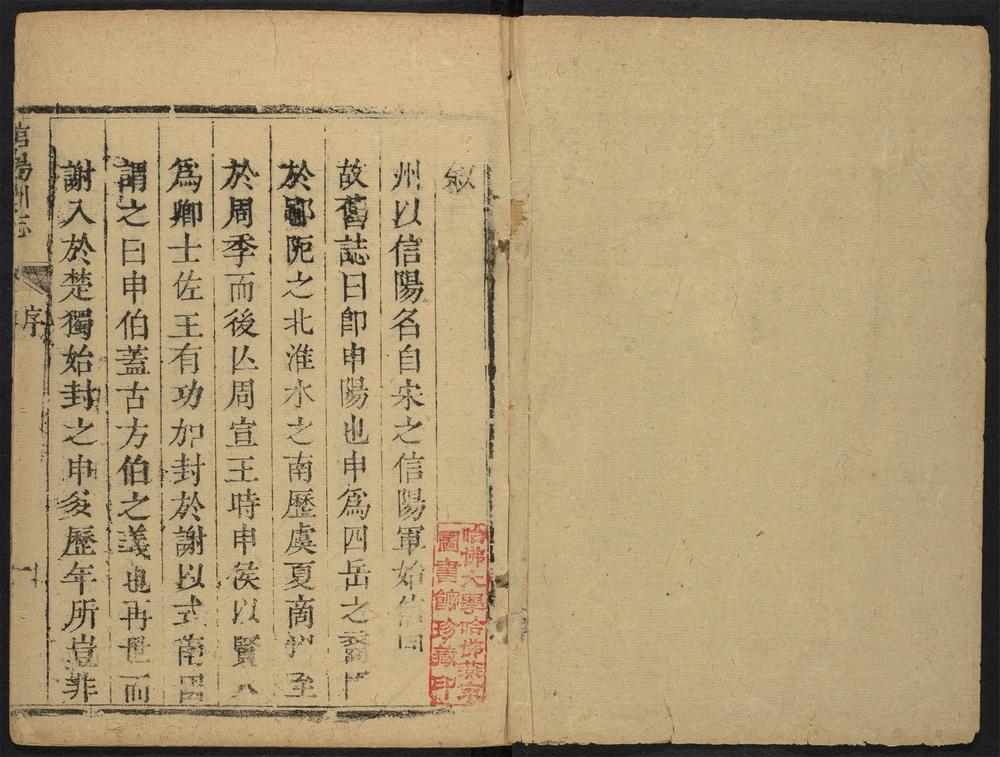 叙
州以信陽名自宋之信陽軍始
故舊誌曰卽申陽也申爲四岳之裔
於鄳阨之北淮水之南歷虞夏商州至
於周季而後亾周宣王時申矦以賢入
爲卿士佐王有功加封於謝以式南国
謂之曰申伯蓋古方伯之義也再世而
謝入於楚獨始封之申多歷年所豈非
信陽州志
序
一
哈佛大學哈佛燕京
圖書館珍藏印